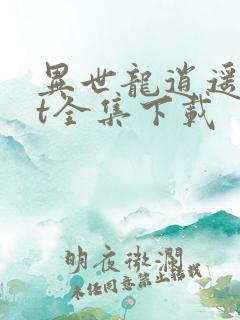 異世龍逍遥
t全集下載
明夜微瀾
未經同意禁止轉載